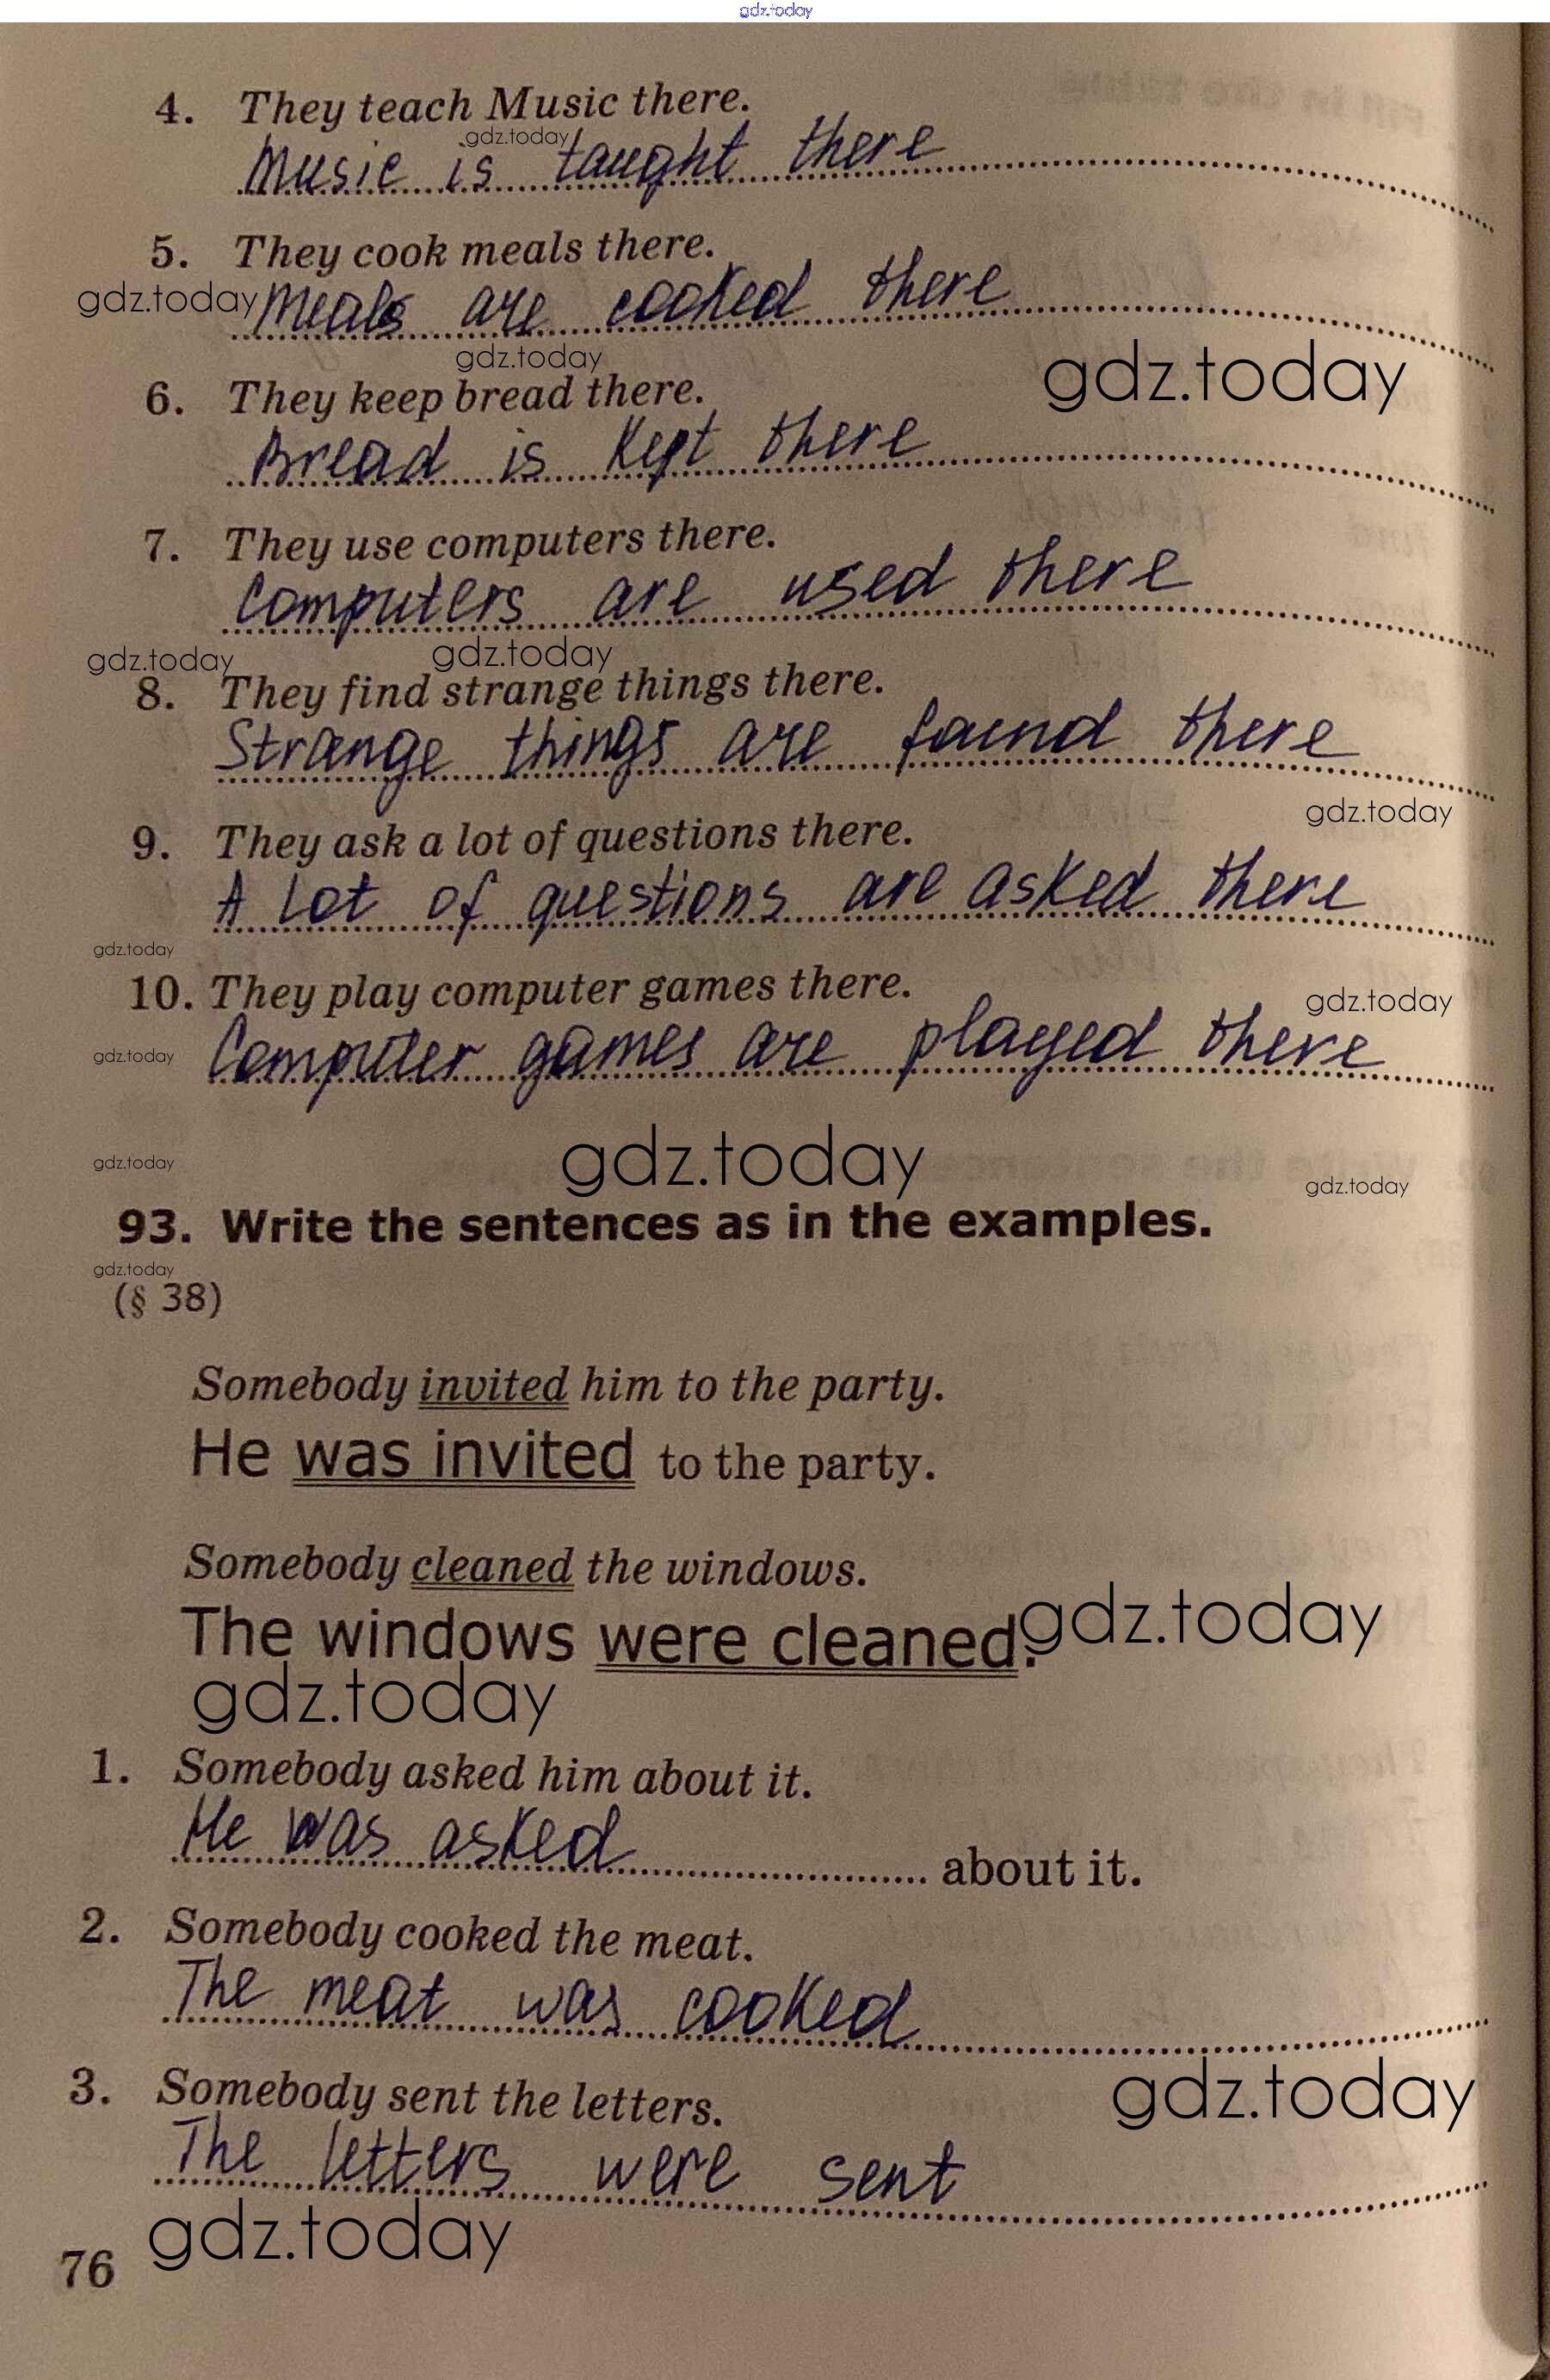 gdz.today
4. They teach Music there.
gdz.today
Music is taught there
5. They cook meals there.
gdz.today
Meals are cooked there
gdz.today
gdz.today
6. They keep bread there.
Bread is kept there
7. They use computers there.
Computers are used there
gdz.today
gdz.today
8. They find strange things there.
Strange things are found there
gdz.today
9. They ask a lot of questions there.
A lot of questions are asked there
gdz.today
10. They play computer games there.
gdz.today
gdz.today
Computer games are played there
gdz.today
gdz.today
gdz.today
93. Write the sentences as in the examples.
gdz.today
(§ 38)
Somebody invited him to the party.
He was invited to the party.
Somebody cleaned the windows.
The windows were cleaned.
gdz.today
gdz.today
1. Somebody asked him about it.
He was asked about it.
2. Somebody cooked the meat.
The meat was cooked
3. Somebody sent the letters.
gdz.today
The letters were sent
gdz.today
76